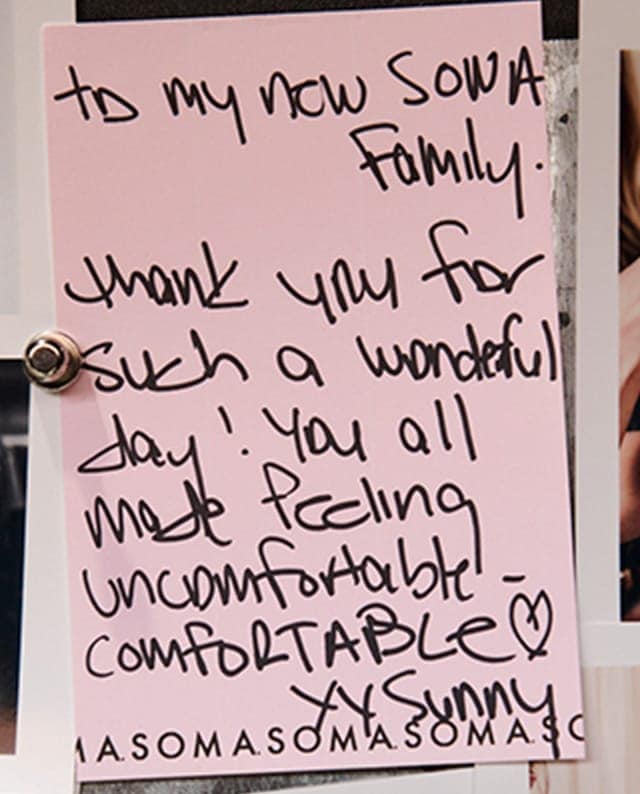 to my new SOMA
Family.
thank you for
such a wonderful
day! You all
made feeling
uncomfortable -
COMFORTABLE♡
XX Sunny
MA.SOMA.SOMA.SOMA.SO